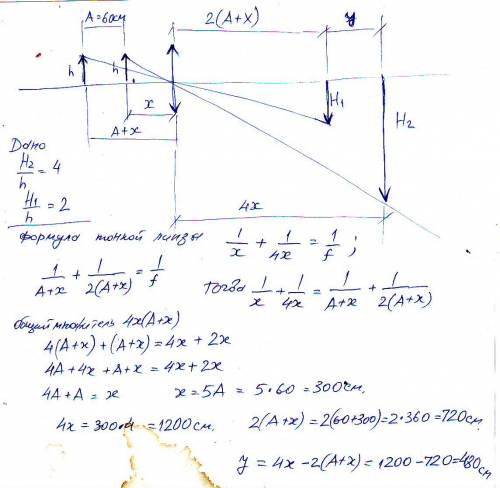 A=60см
2(A+x)
y
h
h
x
A+x
H₁
H₂
4x
Дано
H₂/h = 4
H₁/h = 2
формула тонкой линзы 1/x + 1/4x = 1/f ;
1/(A+x) + 1/2(A+x) = 1/f
тогда 1/x + 1/4x = 1/(A+x) + 1/2(A+x)
общий множитель 4x(A+x)
4(A+x)+(A+x)=4x+2x
4A+4x+A+x=4x+2x
4A+A=x
x=5A = 5·60=300см.
4x=300·4=1200см.
2(A+x)=2(60+300)=2·360=720см.
y = 4x-2(A+x)=1200-720=480см